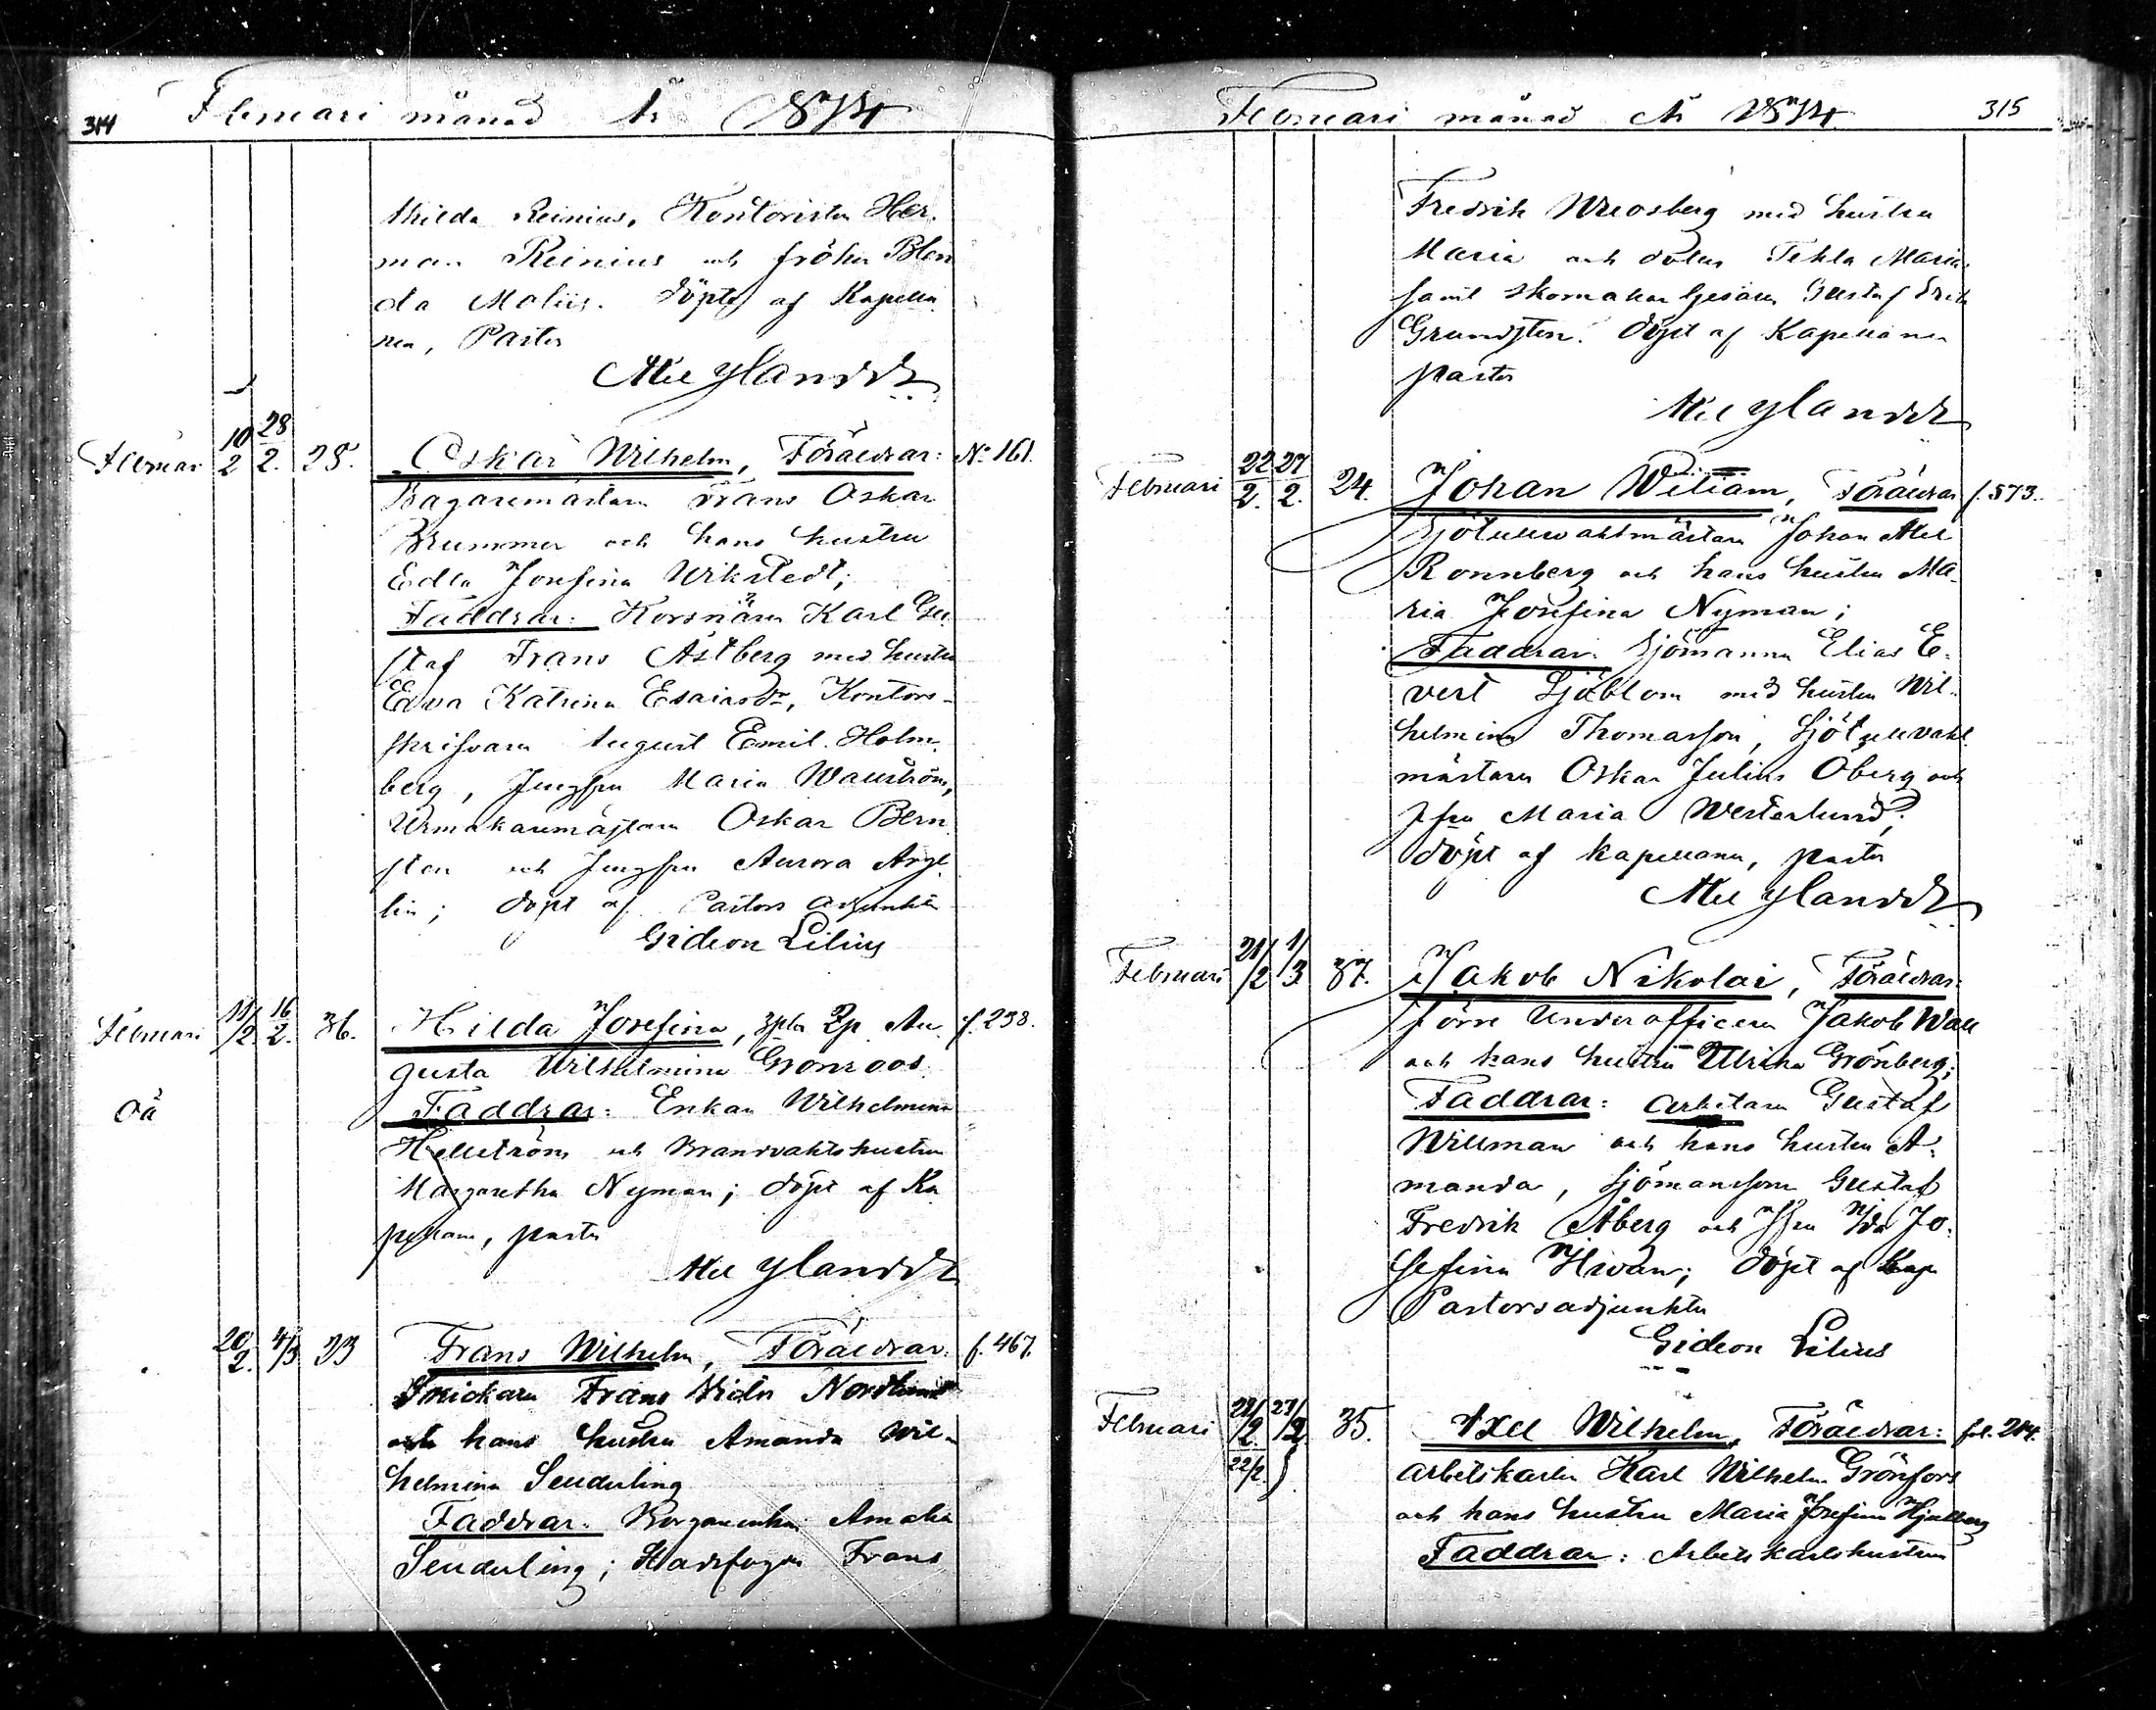 314 Februari månad År 1874
thilda Reinius, Kontoristen Her-
man Reinius och fröken Blen
da Moliis. döpt af Kapella
nen, Pastor
Axel Ylander
Februar 10/2 28/2. 25. Oskar Wilhelm, Föräldrar: No 161.
Bagaremästaren Frans Oskar
Brummer och hans hustru
Edla Josefina Wikstedt;
Faddrar: Korsnären Karl Gu
staf Frans Åstberg med hustru
Edva Katrina Esaiasdr, Kontors-
skrifvaren August Emil Holm-
berg, Jungfru Maria Wallström,
Urmakaremästaren Oskar Bern
sten och Jungfru Aurora
lin; döpt af Pastors adjunkten
Gideon Lilius
Februari 11/2. 16/2. 36. Hilda Josefina, Au f. 238.
gusta Wilhelmina Grönroos.
oä Faddrar: Enkan Wilhelmina
Hellström och Brandvaktshustrun
Margaretha Nyman; döpt af Ka
pellanen, pastor
Axel Ylander
20/2. 4/3 23 Frans Wilhelm, Föräldrar: f. 467.
Snickaren Frans Viktor Nordlund
och hans hustru Amanda Wil-
helmina Senderling
Faddrar: Borgareenkan Amalia
Senderling; Stadsfogden Frans
Februari månad År 1874 315
Fredrik Wreosberg med hustru
Maria och dotter Tekla Maria
samt skomakaregesällen Gustaf Erik
Grundsten. döpt af Kapellanen
pastor
Axel Ylander
Februari 22/2. 27/2. 24. Johan Wiliam, Föräldrar f. 573.
Sjötullvaktmästaren Johan Axel
Rönnberg och hans hustru Ma-
ria Josefina Nyman;
Faddrar: Sjömannen Elias E-
vert Sjöblom med hustru Wil-
helmina Thomasson, Sjötullvakt
mästaren Oskar Julius Öberg och
Jfru Maria Westerlund;
döpt af kapellanen, pastor
Axel Ylander
Februari 21/2 1/3 37. Jakob Nikolai, Föräldrar:
förre Underofficeren Jakob Wall
och hans hustru Ulrika Grönberg;
Faddrar: arbetaren Gustaf
Willman och hans hustru A-
manda, Sjömanssonen Gustaf
Fredrik Åberg och Jfru Ida Jo-
sefina Hivån; döpt af Kap
Pastorsadjunkten
Gideon Lilius
Februari 22/2 27/2 35. Axel Wilhelm, Föräldrar: fol. 214.
22/2. arbetskarlen Karl Wilhelm Grönfors
och hans hustru Maria Josefina Hjulberg
Faddrar: Arbetskarlshustrun